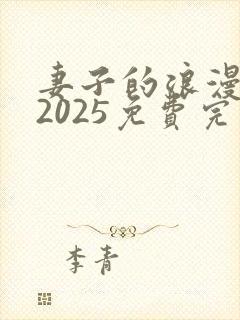 妻子的浪漫
2025免费完
李青